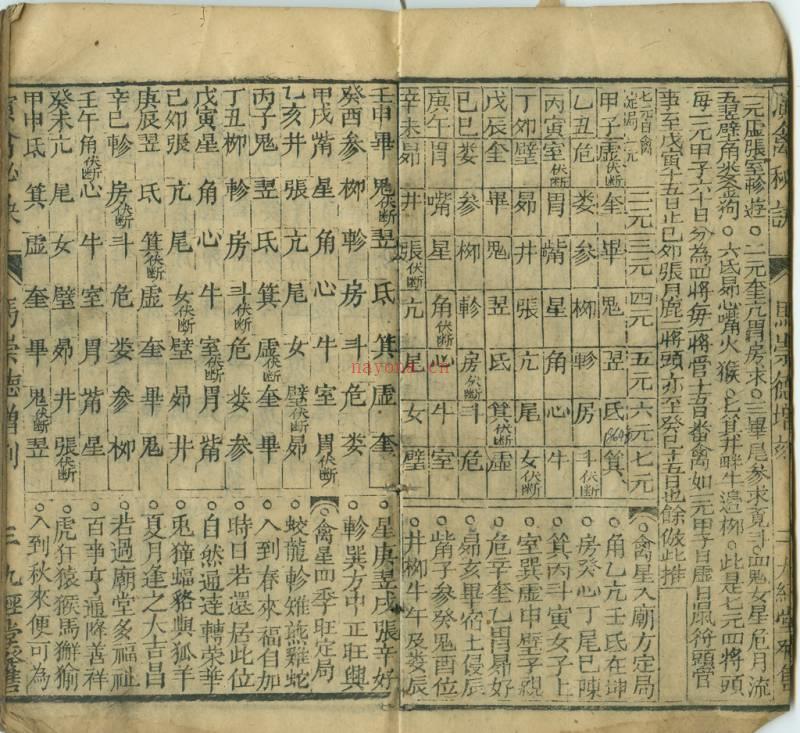 一元虛張室軫遊。二元奎亢胃房求。三畢尾參求竟斗。四鬼女星危月流
五翌壁角婁金狗。六氐昴心嘴火猴。七箕井畔牛邉柳。此是七元四將頭
每一元甲子六十日分為四將每一將管十五日番禽如一元甲子日虛日鼠符頭管
事至戊寅十五日止己卯張月鹿二將頭亦至癸巳十五日也餘倣此推
七元日禽定局 一元 二元 三元 四元 五元 六元 七元
甲子 虛伏斷 奎 畢 鬼 翌 氐 箕
乙丑 危 婁 參 柳 軫 房 斗伏斷
丙寅 室伏斷 胃 嘴 星 角 心 牛
丁卯 壁 昴 井 張 亢 尾 女伏斷
戊辰 奎 畢 鬼 翌 氐 箕伏斷 虛
己巳 婁 參 柳 軫 房伏斷 斗 危
庚午 胃 嘴 星 角伏斷 心 牛 室
辛未 昴 井 張伏斷 亢 尾 女 壁
○禽星入廟方定局
○角乙亢壬氐在坤
○房癸心丁尾巳陳
○箕丙斗寅女子上
○室巽虛申壁子親
○危辛奎乙胃昴好
○昴亥畢寅土侵辰
○觜子參癸鬼酉位
○井柳牛午及婁辰
壬申 畢 鬼伏斷 翌 氐 箕 虛 奎
癸酉 參 柳 軫 房 斗 危 婁
甲戌 嘴 星 角 心 牛 室 胃伏斷
乙亥 井 張 亢 尾 女 壁 昴
丙子 鬼 翌 氐 箕 虛伏斷 奎 畢
丁丑 柳 軫 房 斗伏斷 危 婁 參
戊寅 星 角 心 牛 室伏斷 胃 嘴
己卯 張 亢 尾 女伏斷 壁 昴 井
庚辰 翌 氐 箕伏斷 虛 奎 畢 鬼
辛巳 軫 房伏斷 斗 危 婁 參 柳
壬午 角伏斷 心 牛 室 胃 嘴 星
癸未 亢 尾 女 壁 昴 井 張伏斷
甲申 氐 箕 虛 奎 畢 鬼伏斷 翌
○星庚翌戌張辛好
○軫巽方中正旺興
○禽星四季旺定局
○蛟龍軫雉燕雞蛇
○入到春來福自加
○時日若還居此位
○自然通達轉榮華
○兎獐蝠貉與狐羊
○夏月逢之大吉昌
○若過廟堂多福祉
○百事亨通降善祥
○虎犴猿猴馬獬㺄
○入到秋來便可為
nayona.cn